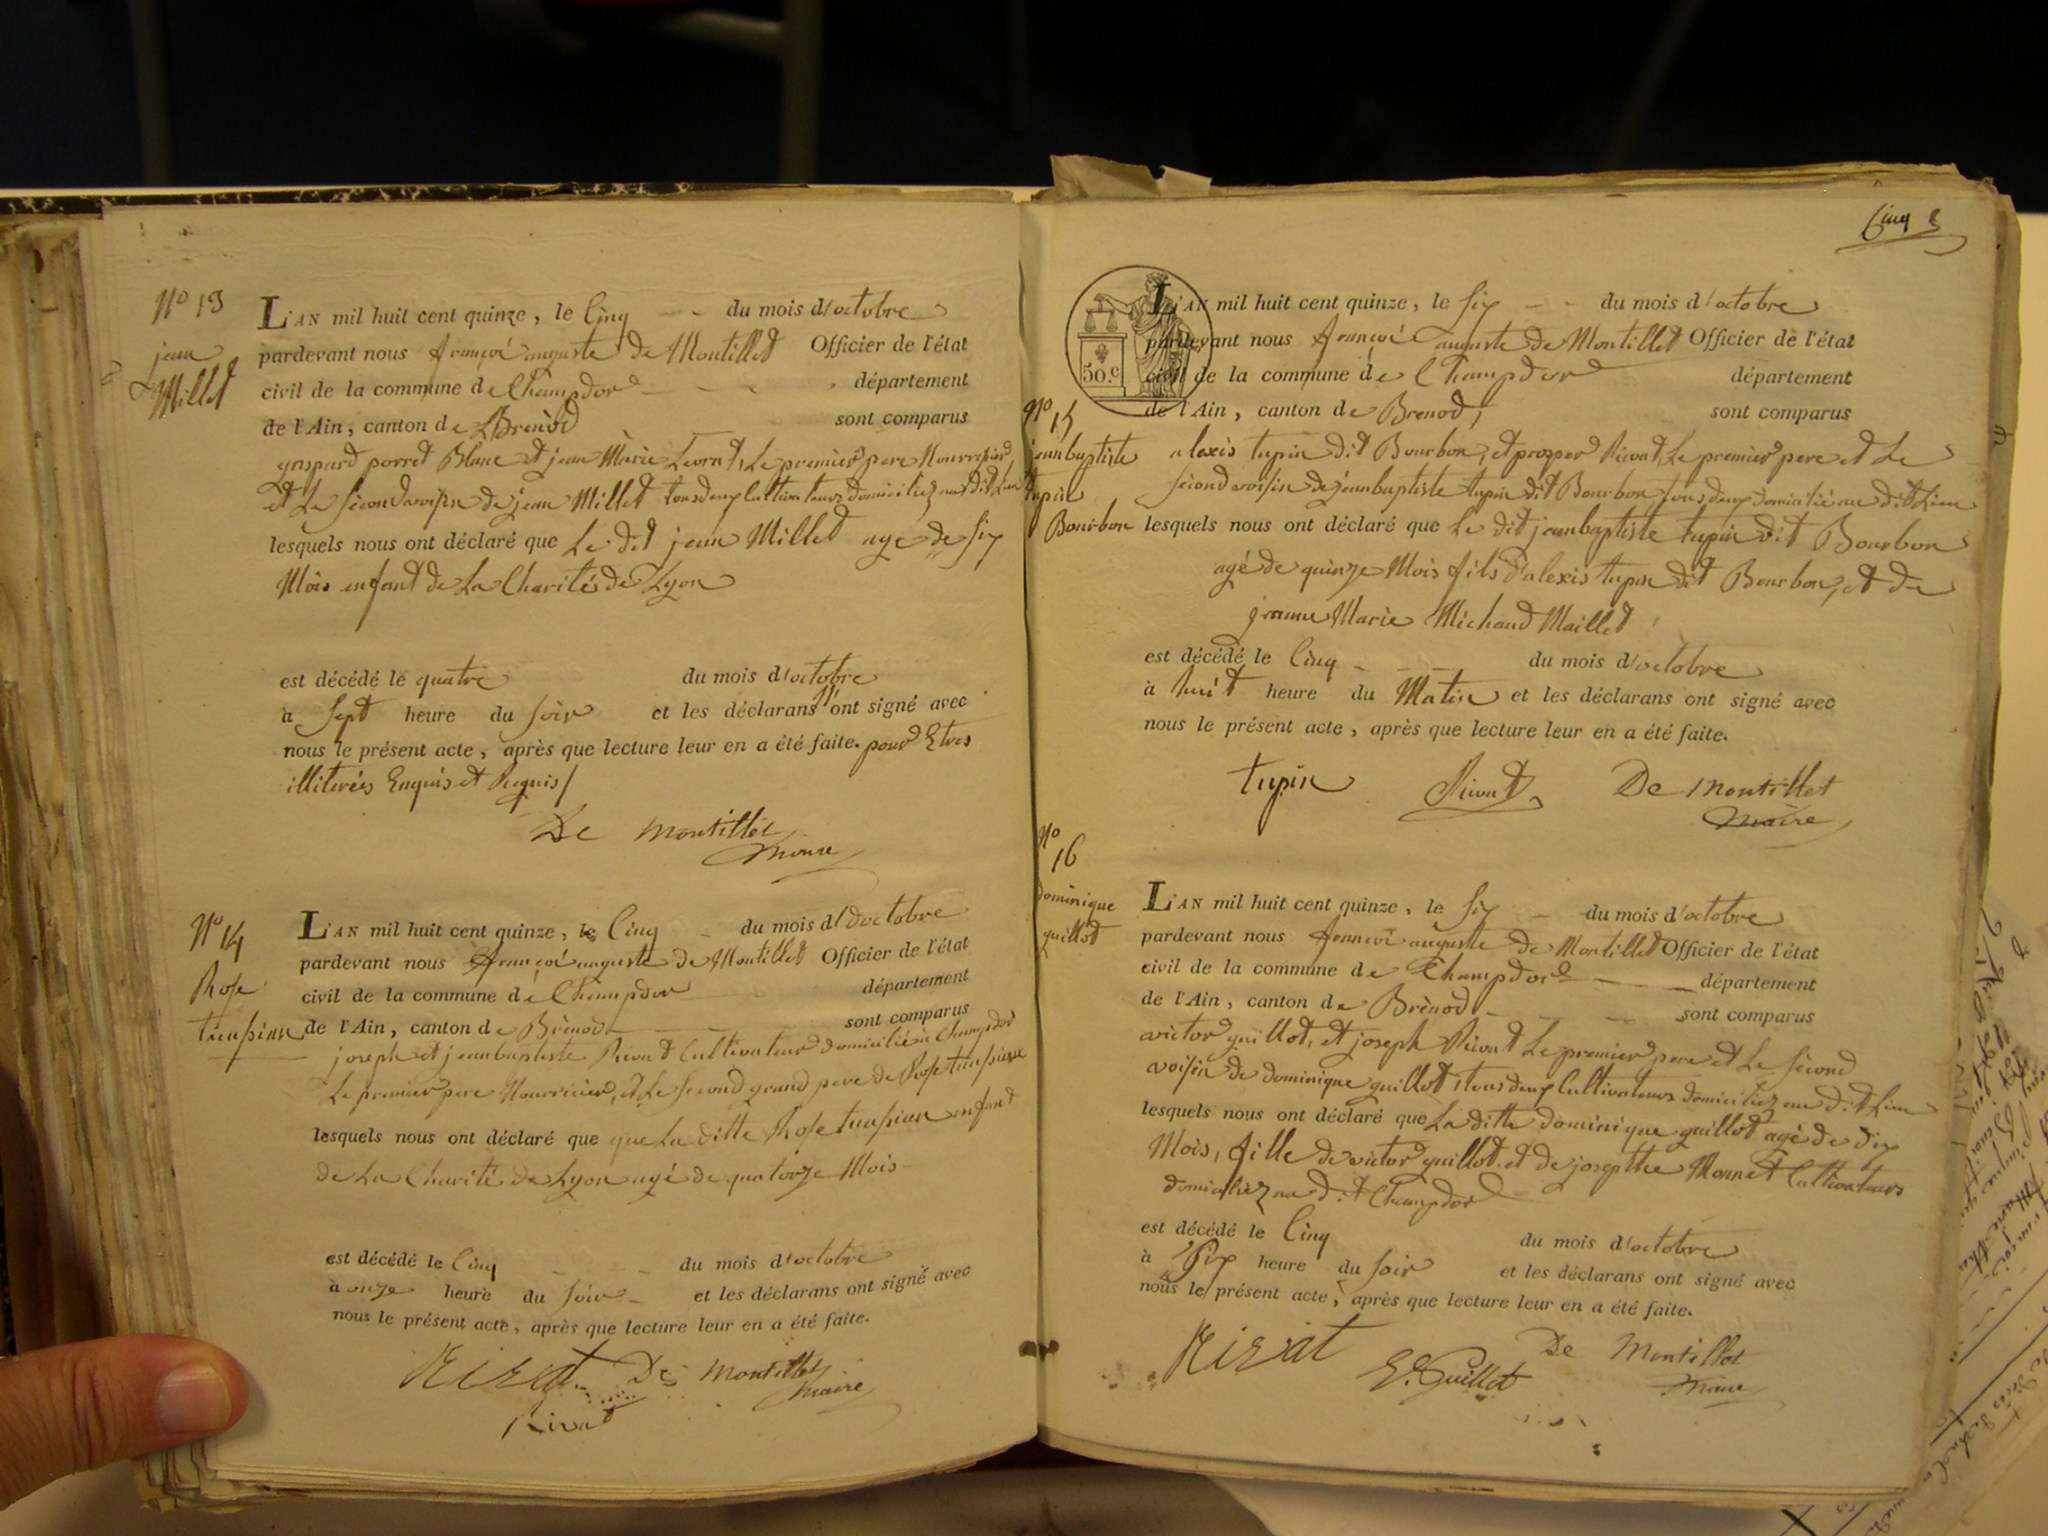 No 13
jean
Millet
L'AN mil huit cent quinze, le Cinq du mois d'octobre
pardevant nous françoi auguste de Montillet Officier de l'état
civil de la commune de Champdor département
de l'Ain, canton de Brénod sont comparus
gaspard porret Blanc et jean Marie Levrat, Le premier pere Nourricier
et Le Second voisin de jean Millet tous deux Cultivateurs domiciliez au dit Lieu
lesquels nous ont déclaré que Le dit jean Millet agé de Six
Mois enfant de La Charité de Lyon
est décédé le quatre du mois d'octobre
à Sept heure du Soir et les déclarans n'ont signé avec
nous le présent acte, après que lecture leur en a été faite. pour Etres
illiterées Enquis et Requis/
De Montillet
maire
No 14
Rose
L'AN mil huit cent quinze, le Cinq du mois d'octobre
pardevant nous françoi auguste de Montillet Officier de l'état
civil de la commune de Champdor département
de l'Ain, canton de Brénod sont comparus
joseph et jeanbaptiste Rivat Cultivateur domicilié à Champdor
Le premier pere Nourricier, et Le Second grand pere de Rose
lesquels nous ont déclaré que que La ditte Rose enfant
de La Charité de Lyon agé de quatorze Mois
est décédé le Cinq du mois d'octobre
à onze heure du Soir et les déclarans ont signé avec
nous le présent acte, après que lecture leur en a été faite.
Rivat De Montillet
maire
Rivat
Cinq 5
50.c
No 15
jeanbaptiste
tupin
Bourbon
L'AN mil huit cent quinze, le Six du mois d'octobre
pardevant nous françoi auguste de Montillet Officier de l'état
civil de la commune de Champdor département
de l'Ain, canton de Brenod, sont comparus
alexis tupin dit Bourbon, et prosper Rivat, Le premier pere et Le
Second voisin de jeanbaptiste tupin dit Bourbon tous deux domicilié au dit Lieu
lesquels nous ont déclaré que Le dit jeanbaptiste tupin dit Bourbon
agé de quinze Mois fils d'alexis tupin dit Bourbon, et de
jeanne Marie Michaud Maillet
est décédé le Cinq du mois d'octobre
à huit heure du Matin et les déclarans ont signé avec
nous le présent acte, après que lecture leur en a été faite.
tupin Rivat De Montillet
maire
No 16
dominique
guillot
L'AN mil huit cent quinze, le Six du mois d'octobre
pardevant nous françoi auguste de Montillet Officier de l'état
civil de la commune de Champdor département
de l'Ain, canton de Brénod sont comparus
victor guillot, et joseph Rivat Le premier pere et Le Second
voisin de dominique guillot, tous deux Cultivateurs domiciliez au dit Lieu
lesquels nous ont déclaré que La ditte dominique guillot agé de dix
Mois, fille de victor guillot et de josepthe Monnet Cultivateurs
domiciliez au dit Champdor
est décédé le Cinq du mois d'octobre
à Six heure du Soir et les déclarans ont signé avec
nous le présent acte, après que lecture leur en a été faite.
Rivat Guillot De Montillet
maire